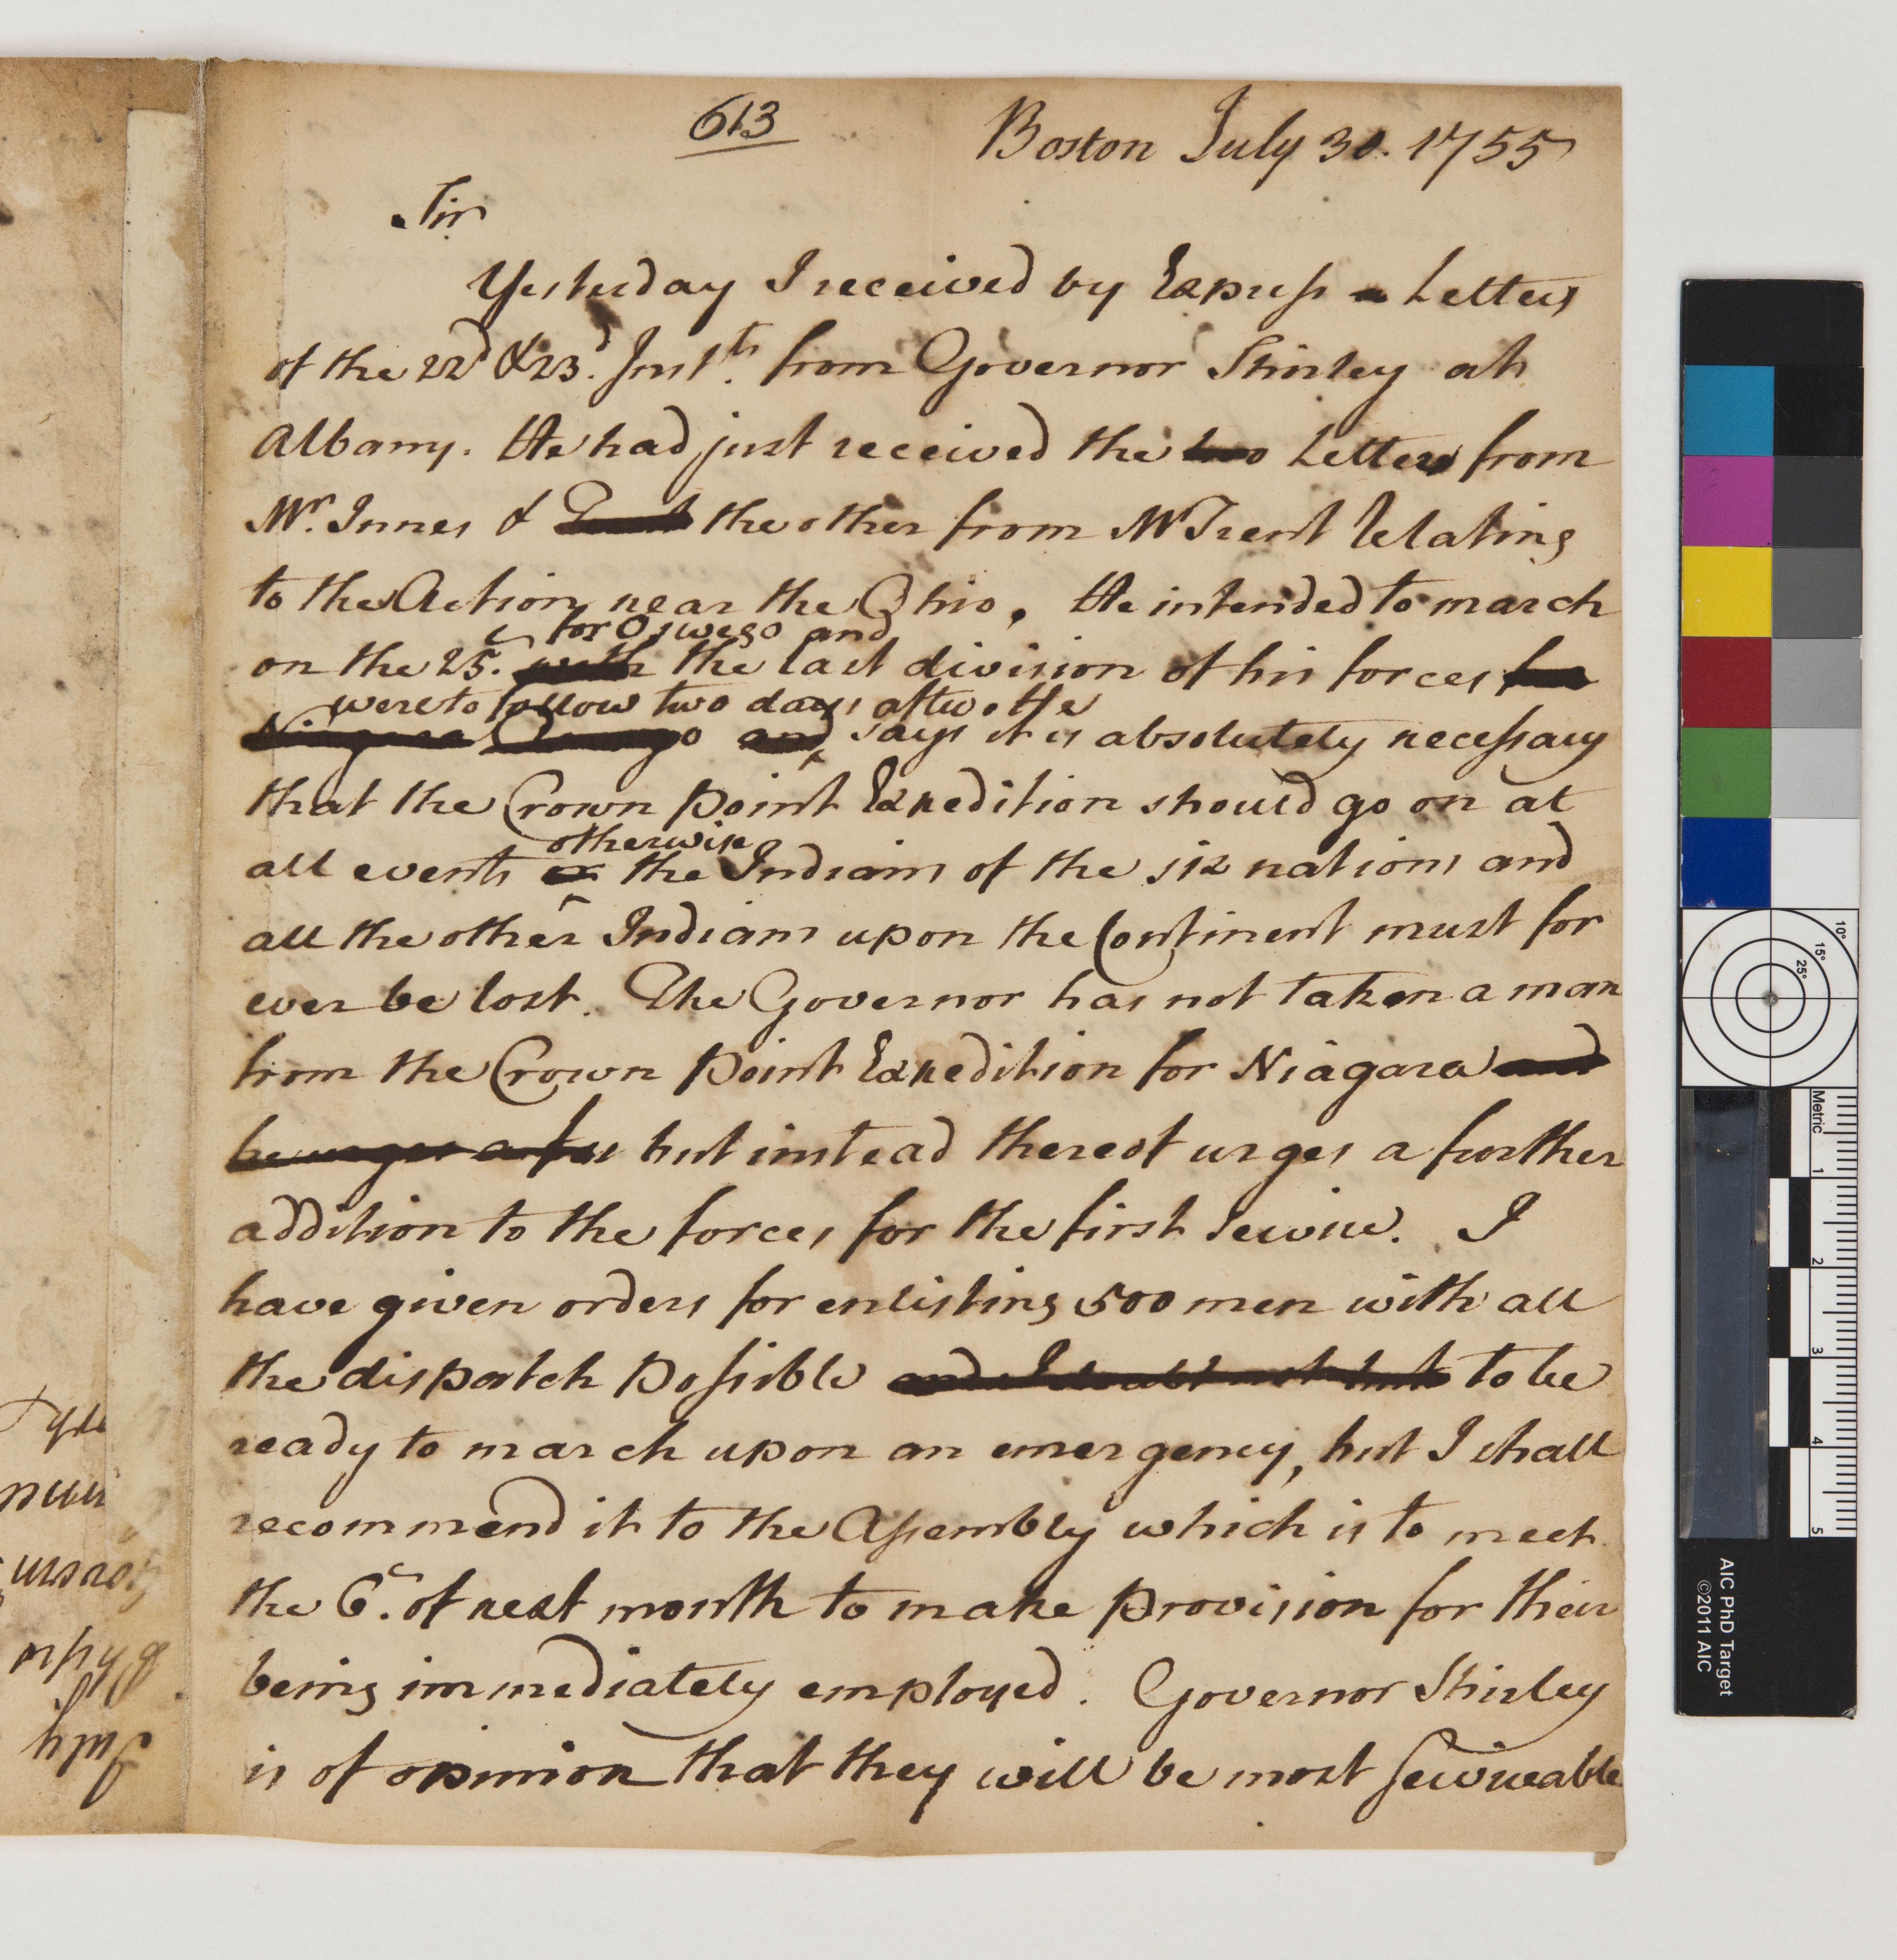 613
Boston July 30. 1755
Sir
Yesterday I received by Express a Letters
of the 22d & 23d. Inst.ts from Governor Shirley at
Albany. He had just received the two Letters from
Mr. Innes & Trent the other from Mr Trent relating
to the Action near the Ohio, He intended to march
for Oswego and
on the 25. with the last division of his forces for
were to follow two days after. He
Niagara Oswego and says it is absolutely necessary
that the Crown point Expedition should go on at
otherwise
all events or the Indians of the six nations and
all the other Indians upon the Continent must for
ever be lost. The Governor has not taken a man
from the Crown point Expedition for Niagara and
he urges a fur but instead thereof urges a further
addition to the forces for the first Service. I
have given orders for enlisting 500 men with all
the dispatch possible and I doubt not but to be
ready to march upon an emergency, but I shall
recommend it to the Assembly which is to meet
the 6. of next month to make provision for their
being immediately employed. Governor Shirley
is of opinion that they will be most serviceable
10°
15°
25°
Metric
1
2
3
4
5
AIC PhD Target
©2011 AIC